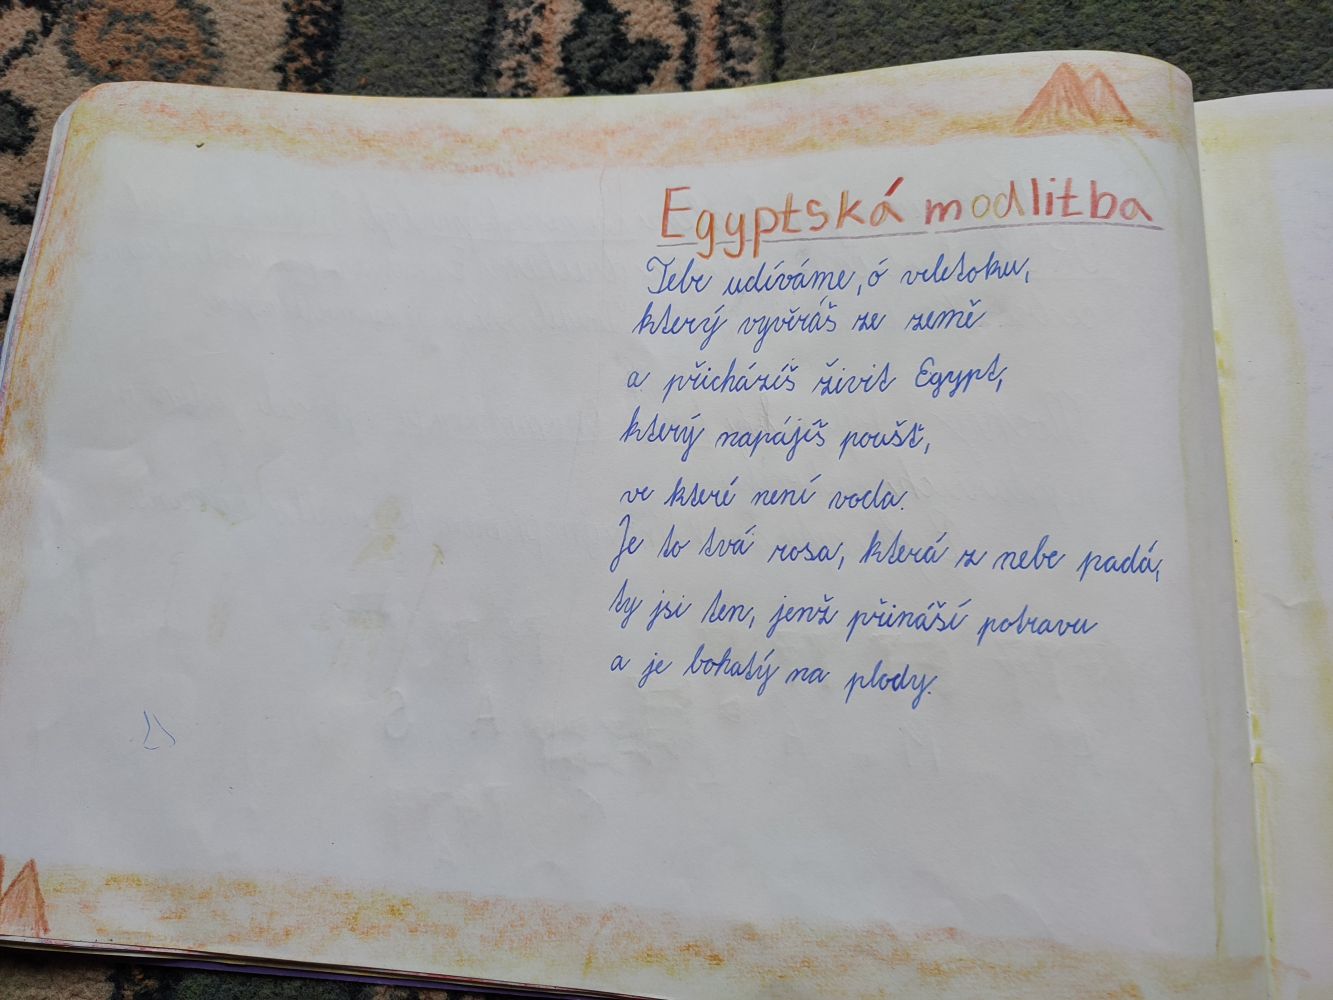 Egyptská modlitba
Tebe udíváme, ó veletoku,
který vyvěráš ze země
a přicházíš živit Egypt,
který napájíš poušť,
ve které není voda.
Je to tvá rosa, která z nebe padá,
ty jsi ten, jenž přináší potravu
a je bohatý na plody.